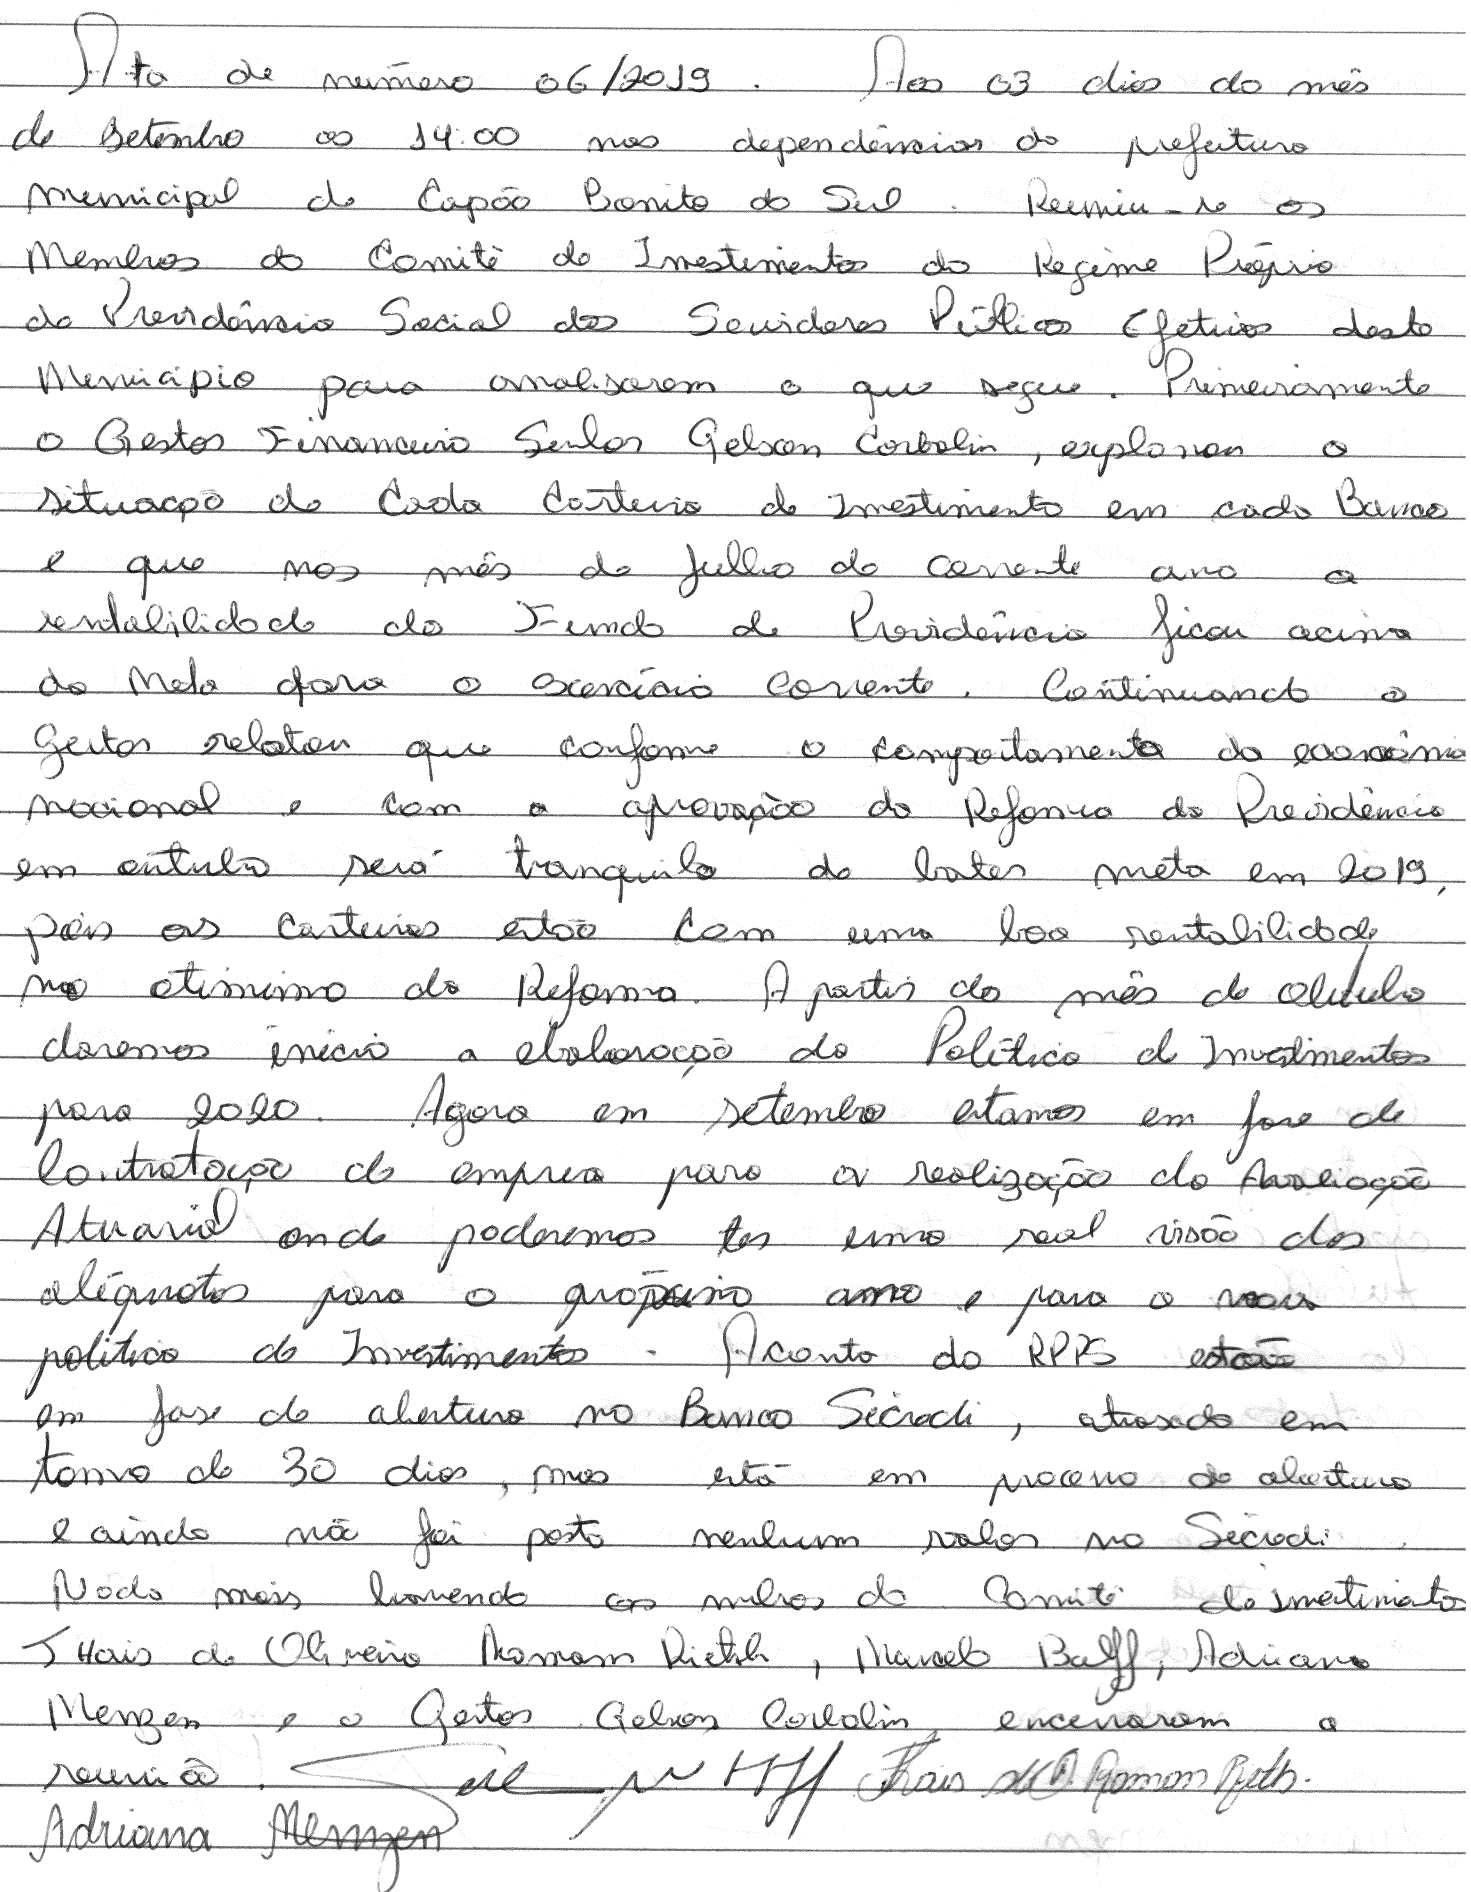 Ata de número 06/2019. Aos 03 dias do mês
de setembro as 14:00 nas dependências da prefeitura
Municipal de Capão Bonito do Sul. Reuniu-se os
Membros do Comitê de Investimentos do Regime Próprio
de Previdência Social dos Servidores Públicos Efetivos deste
Município para analisarem o que segue. Primeiramente
o Gestor Financeiro Senhor Gelson Corbolin, explanou a
situação de Cada Carteira de Investimento em cada Banco
e que nos mês de Julho do corrente ano a
rentabilidade do Fundo de Previdência ficou acima
da Meta para o exercício corrente. Continuando o
Gestor relatou que conforme o comportamento da economia
nacional e com a aprovação da Reforma da Previdência
em outubro será tranquilo de bater meta em 2019,
pois as carteiras estão com uma boa rentabilidade
no otimismo da Reforma. A partir do mês de outubro
daremos início a elaboração da Política de Investimentos
para 2020. Agora em setembro estamos em fase de
Contratação de empresa para a realização da Avaliação
Atuarial onde poderemos ter uma real visão das
alíquotas para o próximo ano e para a nova
política de Investimentos. A conta do RPPS está
em fase de abertura no Banco Sicredi, atrasado em
torno de 30 dias, mas está em processo de abertura
e ainda não foi posto nenhum valor no Sicredi.
Nada mais havendo os membros do Comitê de Investimento
Thais de Oliveira Romam Rieth, Marcelo Balff, Adriana
Menzen e o Gestor Gelson Corbolin, encerraram a
reunião. Thais de O. Romam Rieth.
Adriana Menzen